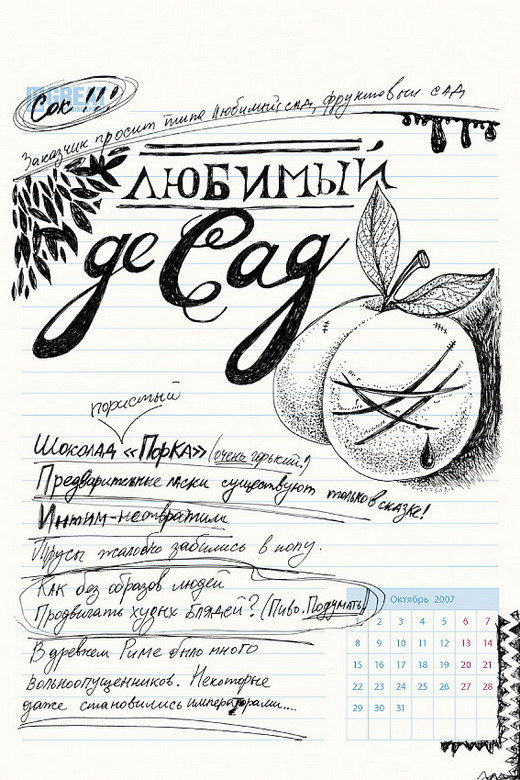 Сок!!!
Заказчик просит типа Любимый сад, фруктовый сад
ЛЮБИМЫЙ
де Сад
пористый
Шоколад «Порка» (очень горький!)
Предварительные ласки существуют только в сказке!
Интим-неотвратим
Трусы жалобно забились в попу.
Как без образов людей
Продвигать худых блядей? (Пиво. Подумать!)
В древнем Риме было много
вольноопущенников. Некоторые
даже становились императорами....
Октябрь 2007
1 2 3 4 5 6 7
8 9 10 11 12 13 14
15 16 17 18 19 20 21
22 23 24 25 26 27 28
29 30 31